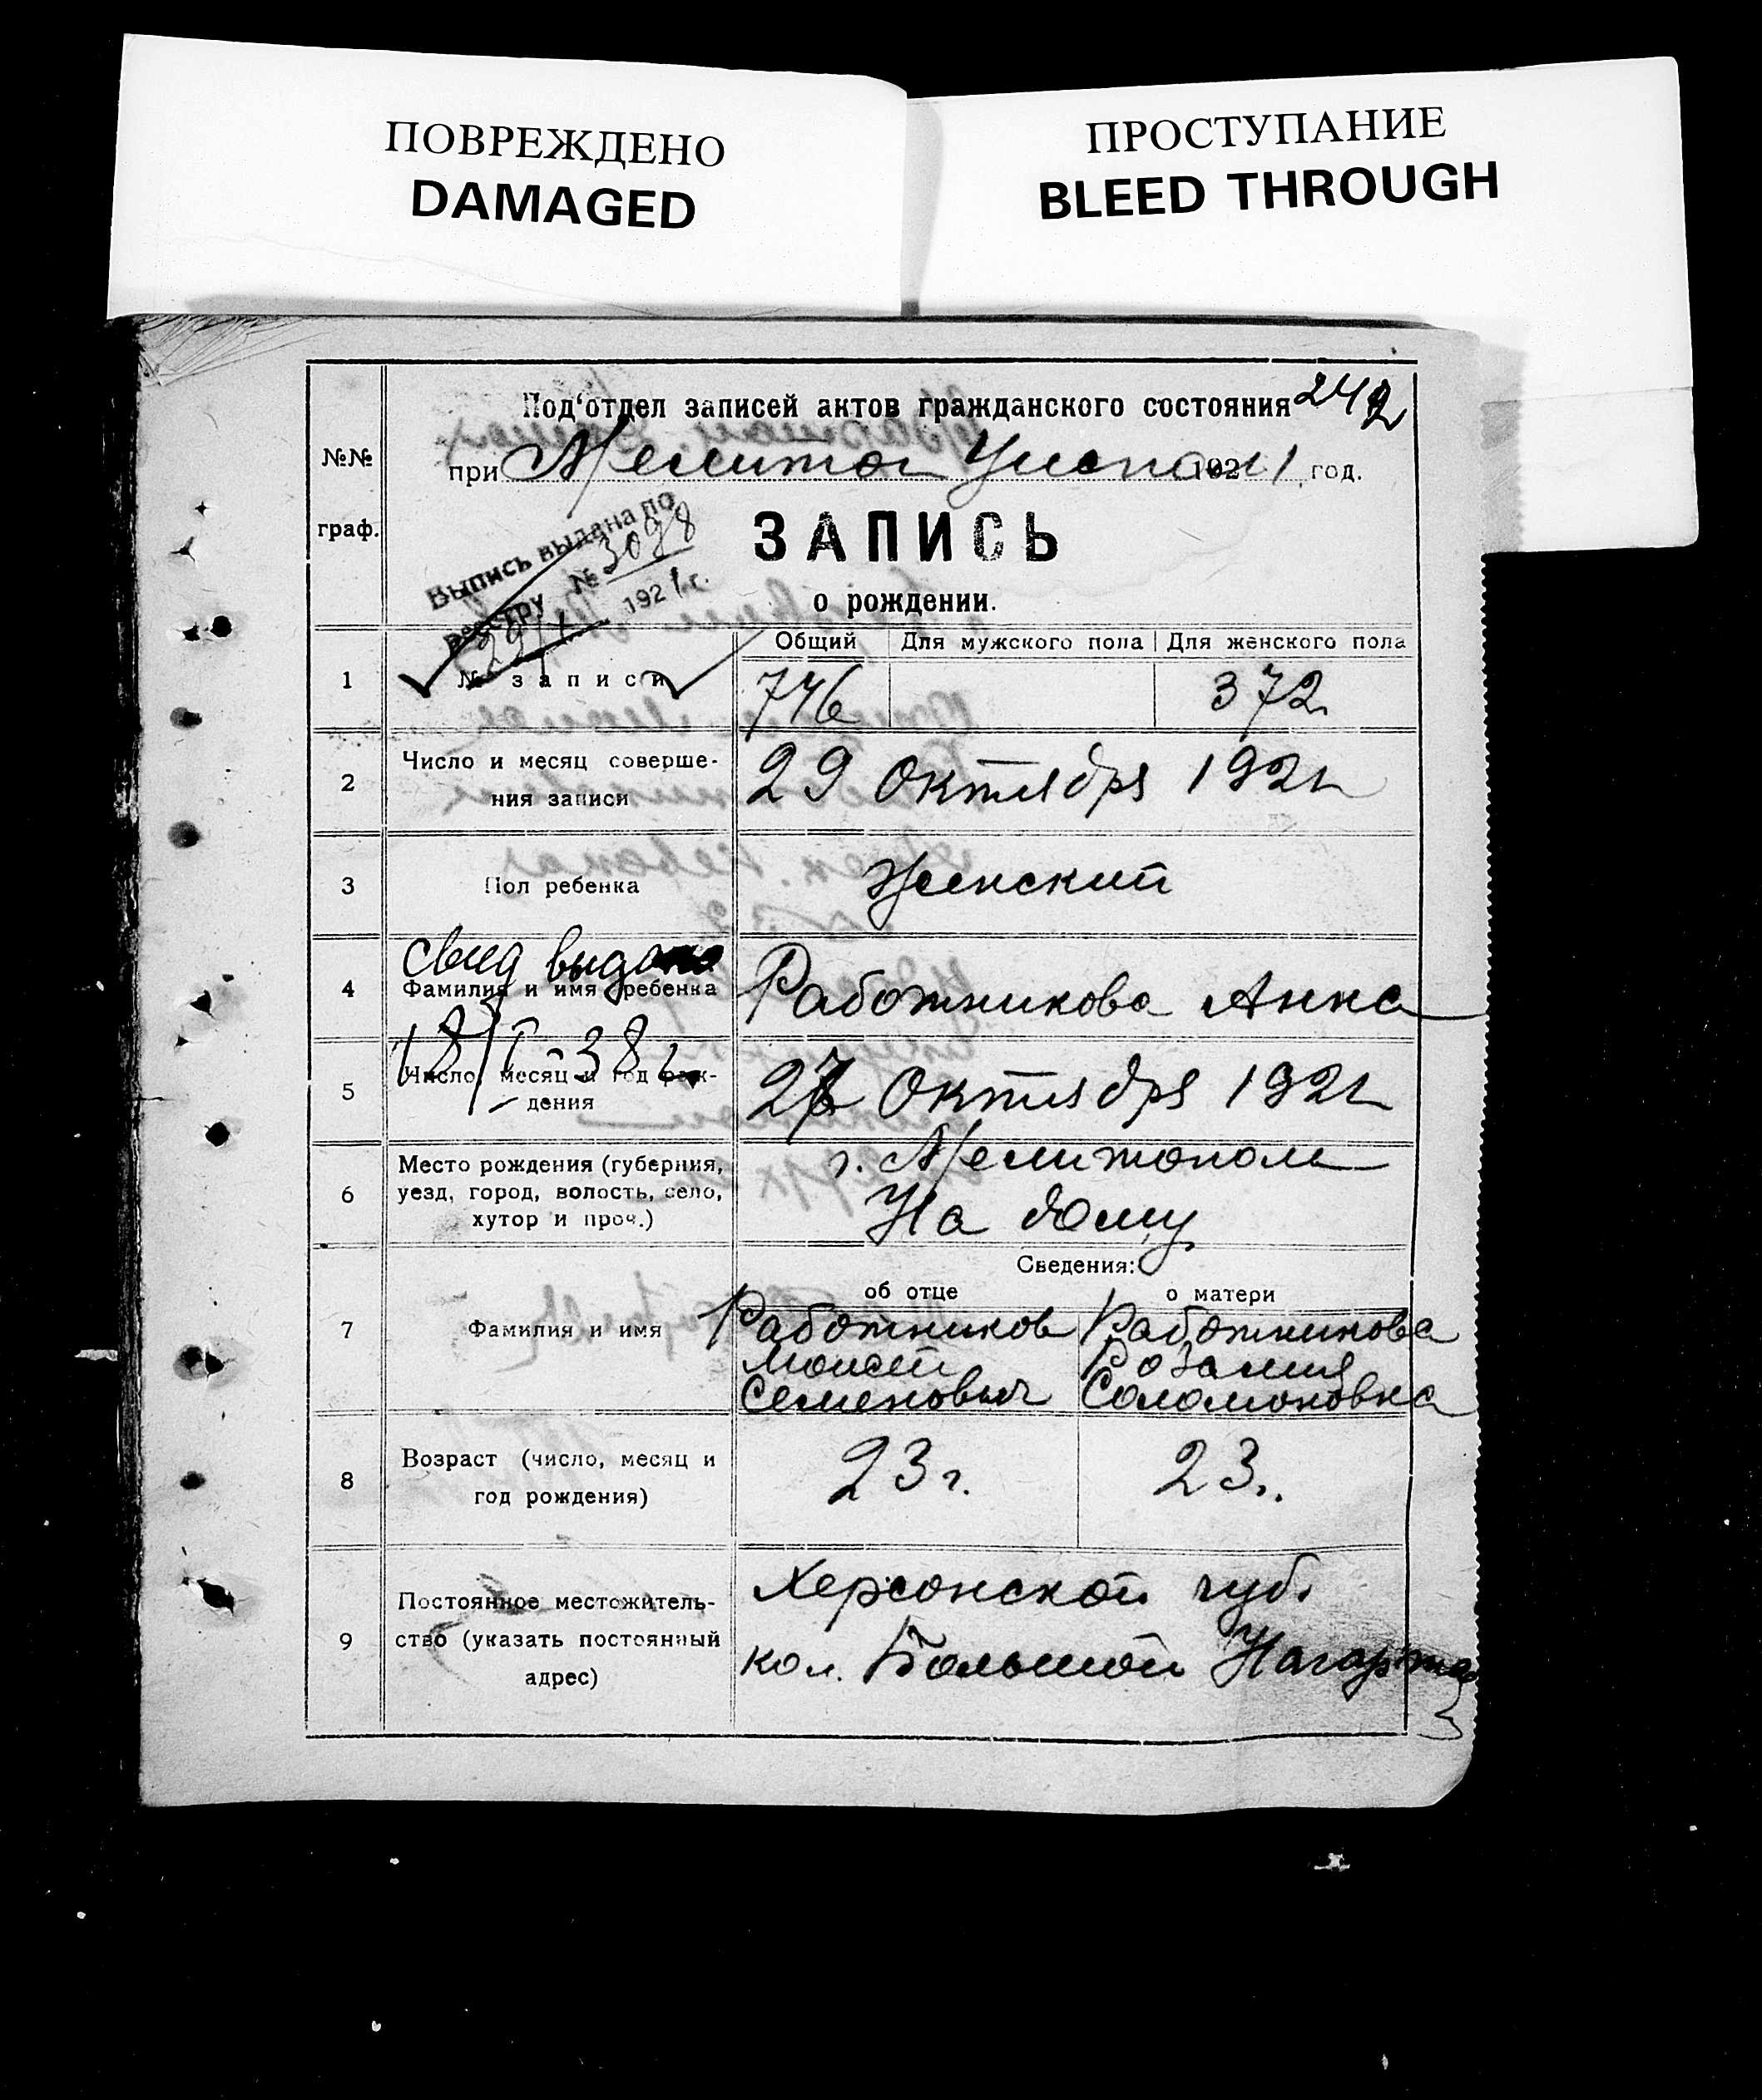 ПОВРЕЖДЕНО
DAMAGED
ПРОСТУПАНИЕ
BLEED THROUGH
Под'отдел записей актов гражданского состояния 242
при Мелитоп 1921 год.
№№ граф.
Выпись выдана по
реестру № 3098
29/X 1921 г.
ЗАПИСЬ
о рождении.
Общий Для мужского пола Для женского пола
1 № записи 746 372
2 Число и месяц соверше-
ния записи
29 Октября 1921
3 Пол ребенка Женский
свид выдано
4 Фамилия и имя ребенка Работникова Анна
18/I-38 г.
5 Число, месяц и год рож-
дения
27 Октября 1921
6 Место рождения (губерния,
уезд, город, волость, село,
хутор и проч.)
г. Мелитополь
На дому
Сведения:
об отце о матери
7 Фамилия и имя
Работников Моисей Семенович
Работникова Розалия Соломоновна
8 Возраст (число, месяц и
год рождения)
23 г. 23 "
9 Постоянное местожитель-
ство (указать постоянный
адрес)
Херсонской губ.
кол. Большой Нагартав